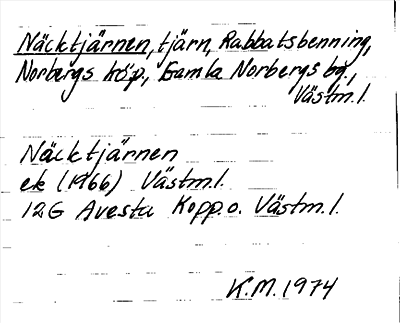 Näcktjärnen, tjärn, Rabbatsbenning,
Norbergs köp., Gamla Norbergs bg.,
Västm.l.
Näcktjärnen
ek (1966) Västm.l.
12G Avesta Kopp.o. Västm.l.
K.M.1974